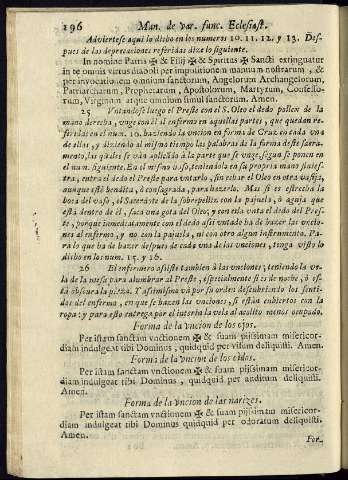 196 Man. de var. func. Eclesiast.
Adviertese aqui lo dicho en los numeros 10. 11. 12. y 13. Des-
pues de las deprecaciones referidas dize lo siguiente.
In nomine Patris ✠ & Filij ✠ & Spiritus ✠ Sancti extinguatur
in te omnis virtus diaboli per impositionem manuum nostrarum, &
per invocationem omnium sanctorum, Angelorum Archangelorum,
Patriarcharum, Prophetarum, Apostolorum, Martyrum, Confesso-
rum, Virginum atque omnium simul sanctorum. Amen.
25 Vntando luego el Preste con el S. Oleo el dedo pollex de la
mano derecha, vnge con él al enfermo en aquellas partes, que quedan re-
feridas en el num. 10. haziendo la vncion en forma de Cruz en cada vna
de ellas, y diziendo al mismo tiempo las palabras de la forma deste sacra-
mento, las quales se vàn aplicando á la parte que se vnge, segun se ponen en
el num. siguiente. En el mismo vaso, teniendolo en su propria mano sinies-
tra, entra el dedo el Preste para vntarlo, sin echar el Oleo en otra vasija,
aunque esté bendita, ó consagrada, para hazerlo. Mas si es estrecha la
boca del vaso, el Sacerdote de la sobrepelliz con la pajuela, ò aguja que
está dentro de él, saca vna gota del Oleo, y con ella vnta el dedo del Pres-
te, porque inmediatamente con el dedo assi vntado ha de hazer las vncio-
nes al enfermo, y no con la pajuela, ni con otro algun instrumento. Pa-
ra lo que ha de hazer despues de cada vna de las vnciones, tenga visto lo
dicho en los num. 15. y 16.
26 El enfermero assiste tambien à las vnciones, teniendo la ve-
la de la mesa para alumbrar al Preste, especialmente si es de noche, ó es-
tá obscura la pieza. Y assimismo và por su orden descubriendo los senti-
dos del enfermo, en que se hazen las vnciones, si están cubiertos con la
ropa: y para esto entrega por el interin la vela al acolito menos ocupado.
Forma de la vncion de los ojos.
Per istam sanctam vnctionem ✠ & suam pijssimam misericor-
diam indulgeat tibi Dominus, quidquid per visum deliquisti. Amen.
Forma de la vncion de los oidos.
Per istam sanctam vnctionem ✠ & suam pijssimam misericor-
diam indulgeat tibi Dominus, quidquid per auditum deliquisti.
Amen.
Forma de la vncion de las narizes.
Per istam sanctam vnctionem ✠ & suam pijssimam misericor-
diam indulgeat tibi Dominus quidquid per odoratum deliquisti.
Amen.
For-